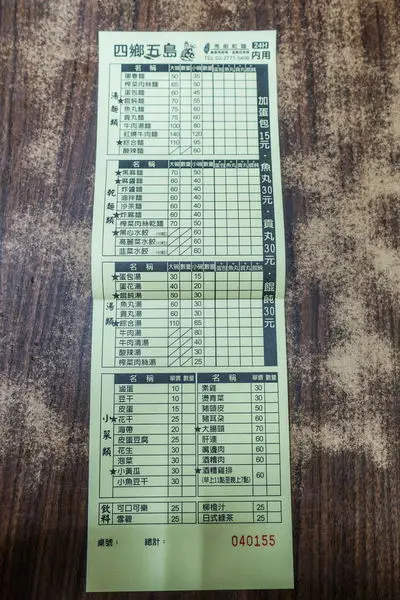 四鄉五島
馬祖乾麵
24H
內用
TEL:02-2771-5406
湯麵類
名 稱 大碗 數量 小碗 數量
陽春麵 50 35
榨菜肉絲麵 65 50
蛋包麵 60 45
★餛飩麵 70 55
魚丸麵 75 60
貢丸麵 75 60
牛肉湯麵 100 80
紅燒牛肉麵 140 120
★綜合麵 110 95
酸辣麵 60
加蛋包15元．魚丸30元．貢丸30元．餛飩30元
乾麵類
名 稱 大碗 數量 小碗 數量 蛋包 魚丸 貢丸 餛飩
★黑麻麵 70 50
★麻醬麵 60 40
炸醬麵 60 40
油拌麵 60 40
沙茶麵 60 40
★炸麻麵 60 40
榨菜肉絲乾麵 70 50
★黑心水餃 60
高麗菜水餃 60
韭菜水餃 60
湯類
名 稱 大碗 數量 小碗 數量 蛋包 魚丸 貢丸 餛飩
★蛋包湯 30 15
蛋花湯 40 20
★餛飩湯 50 30
魚丸湯 60 30
貢丸湯 60 30
★綜合湯 110 65
牛肉湯 80
牛肉清湯 40
酸辣湯 30
榨菜肉絲湯 25
小菜類
名 稱 單價 數量
滷蛋 10
豆干 10
皮蛋 15
★花干 25
海帶 20
皮蛋豆腐 25
花生 30
泡菜 30
★小黃瓜 30
小魚豆干 30
名 稱 單價 數量
素雞 30
燙青菜 30
豬頭皮 50
豬耳朵 60
★大腸頭 70
肝連 60
嘴邊肉 60
酒糟肉 60
★酒糟雞排 60
(早上11點至晚上7點)
飲料
可口可樂 25
雪碧 25
柳橙汁 25
日式綠茶 25
桌號： 總計： 040155